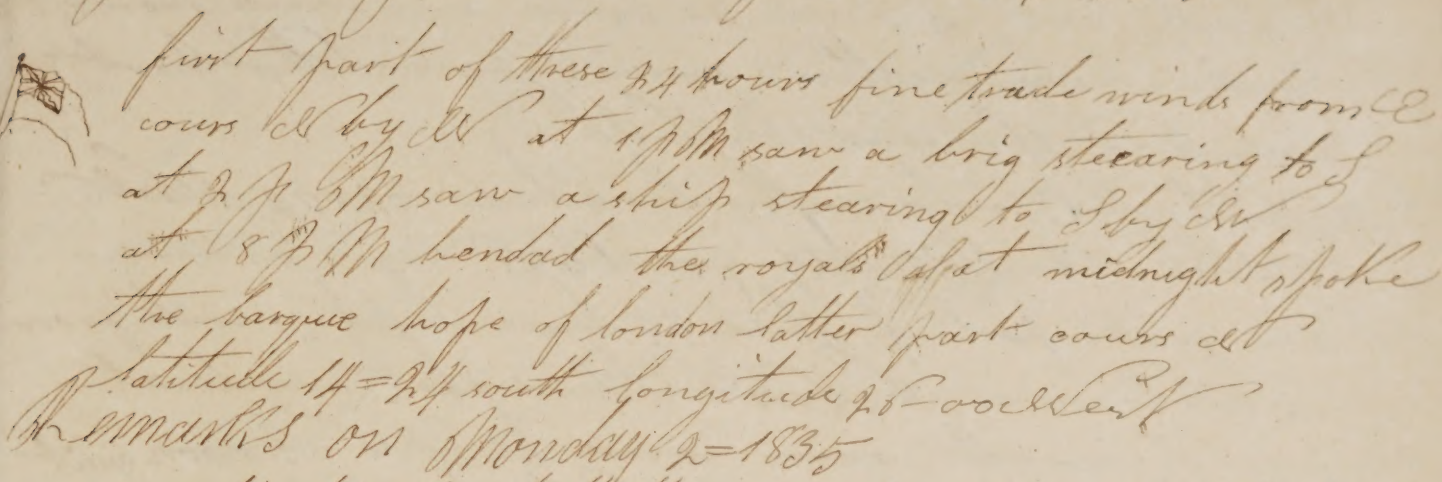 first part of these 24 hours fine trade winds from E
cours N by W at 1 P M saw a brig stearing to S
at 2 P M saw a ship stearing to S by W
at 8 P M bendad the royals at midnight spoke
the barque hope of london latter part cours N
latitude 14=24 south longitude 26-00 West
Remarks on Monday 2=1835